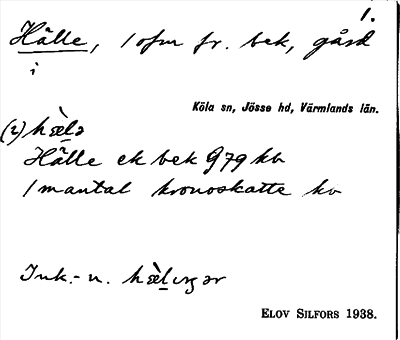 1.
Hälle, 1 ofm fr. bek, gård
i
Köla sn, Jösse hd, Värmlands län.
(i) hæ̀lə
Hälle ek bek G79 kv
1 mantal kronoskatte kv
Ink.-n. hæ̀l
ELOV SILFORS 1938.